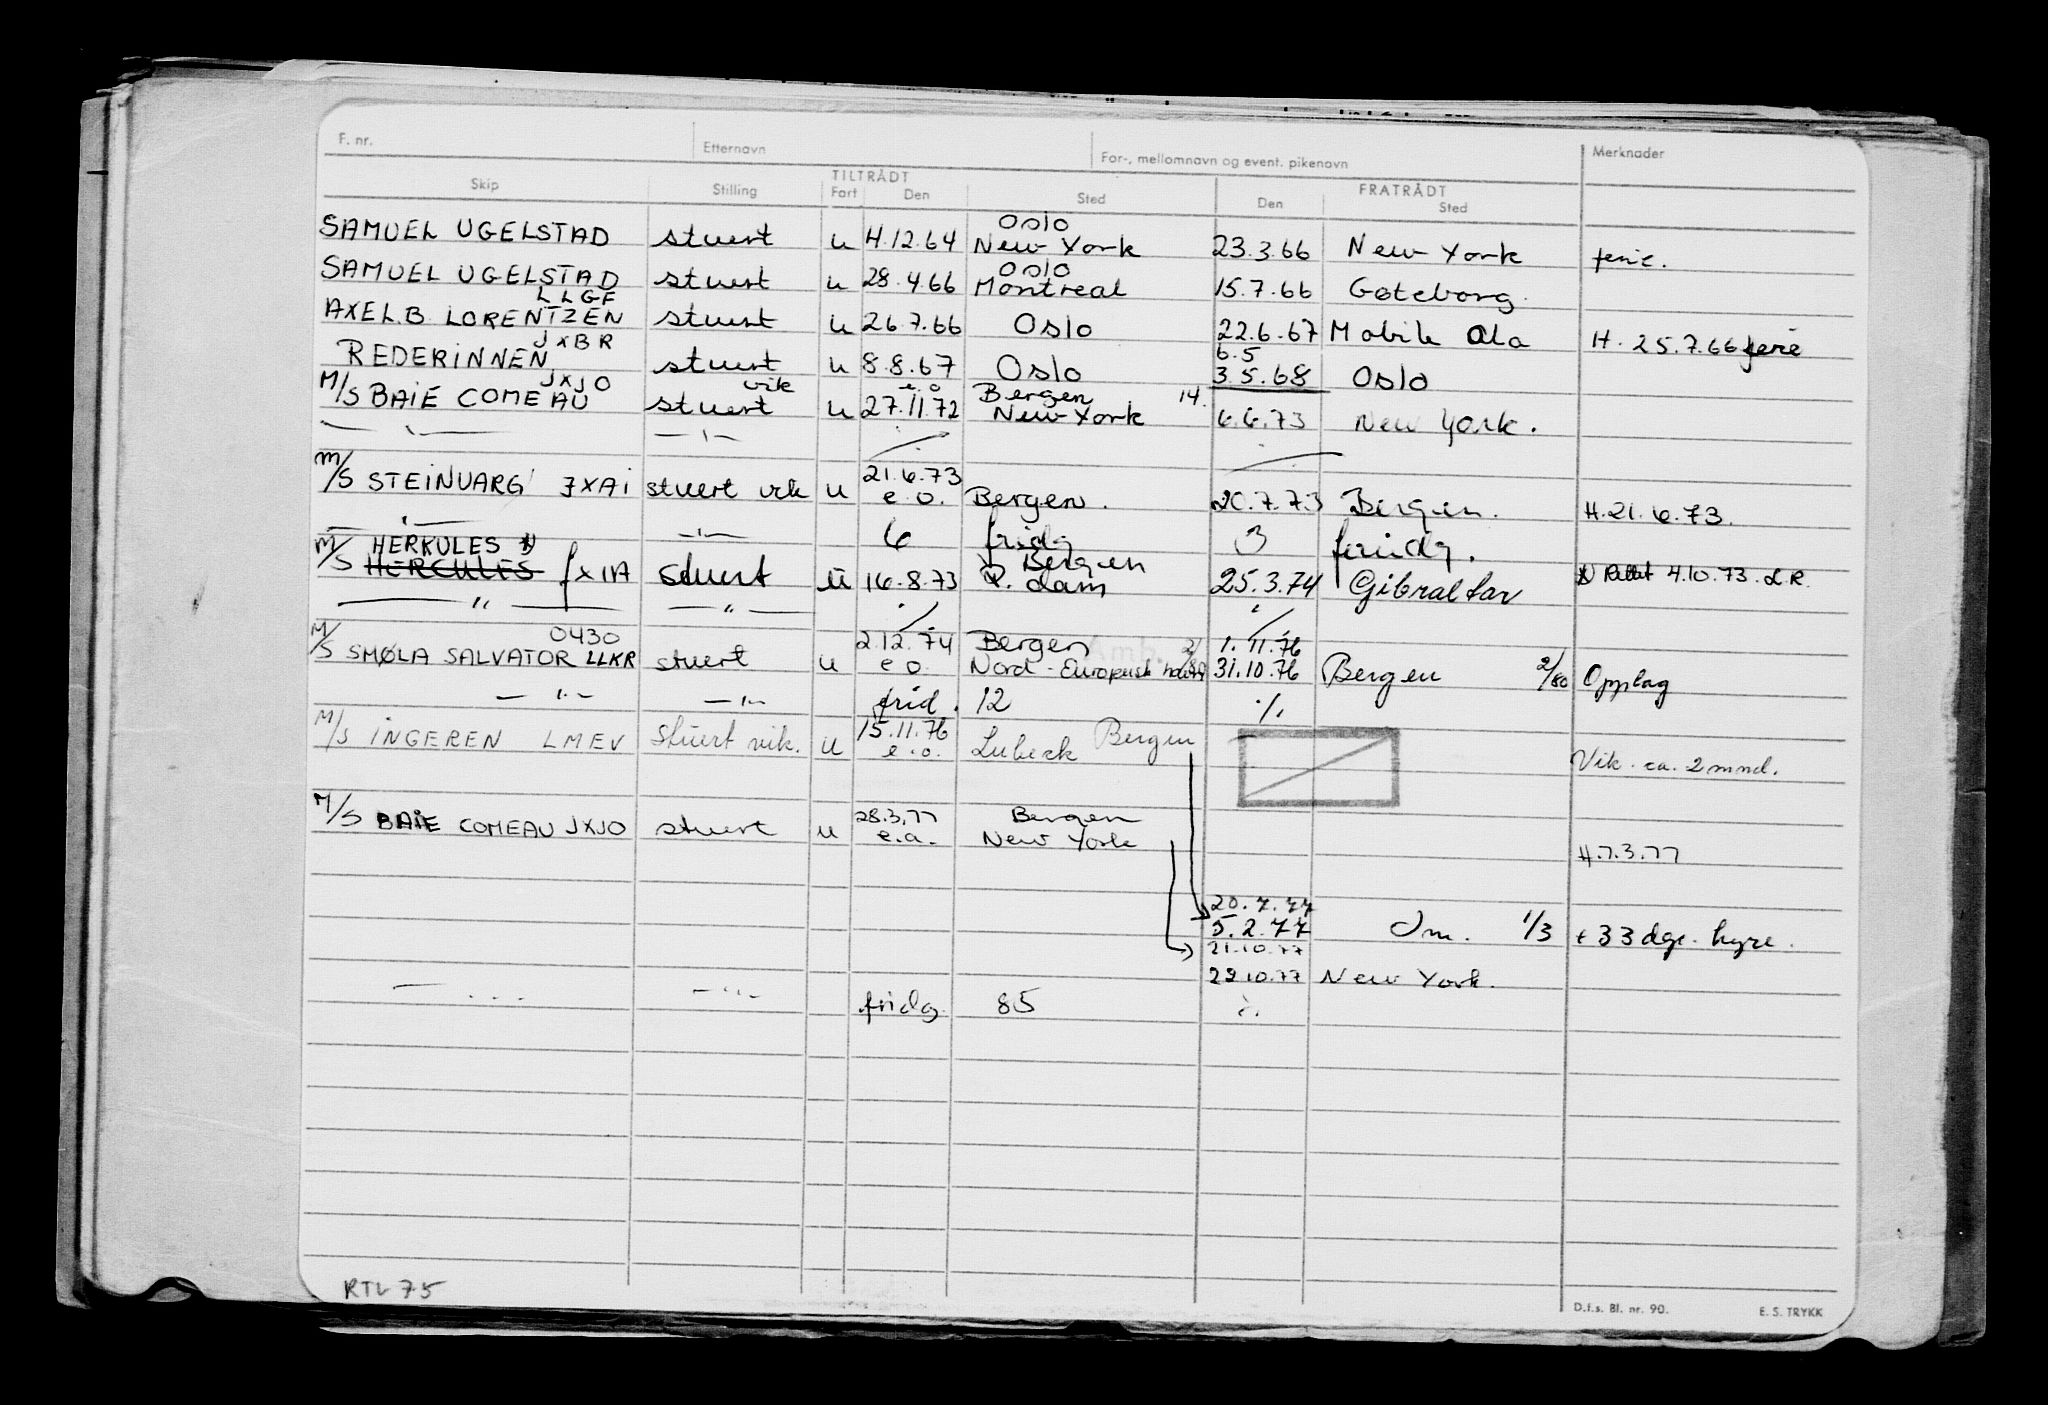 F. nr. Etternavn For-, mellomnavn og event. pikenavn Merknader
TILTRÅDT FRATRÅDT
Skip Stilling Fart Den Sted Den Sted
Oslo
SAMUEL UGELSTAD stuert u 4.12.64 New York 23.3.66 New York ferie.
Oslo
SAMUEL UGELSTAD stuert u 28.4.66 Montreal 15.7.66 Gøteborg
LLGF
AXEL.B LORENTZEN stuert u 26.7.66 Oslo 22.6.67 Mobile Ala H. 25.7.66 ferie
JXBR 6.5
REDERINNEN stuert u 8.8.67 Oslo 3.5.68 Oslo
JXJO vik e.o Bergen 14.
M/S BAIE COMEAU stuert u 27.11.72 New York 6.6.73 New York.
— " — — " —
21.6.73
M/S STEINVARG JXAI stuert vik u e.o. Bergen. 20.7.73 Bergen. H.21.6.73.
— " — — " — 6 fridg 3 feridg.
HERKULES x) Bergen
M/S HERCULES JXIA stuert u 16.8.73 R.dam 25.3.74 Gibraltar x) Rettet 4.10.73. L R.
— " — — " — ./. ./.
0430 2.12.74 Bergen 2/80 1.11.76
M/S SMØLA SALVATOR LLKR stuert u e o. Nord-Europeisk havn 31.10.76 Bergen 2/80 Opplag
— " — — " — frid. 12 ./.
15.11.76 Bergen
M/S INGEREN LMEV Stuert vik. u e.o. Lubeck Vik. ca. 2 mnd.
28.3.77 Bergen
M/S BAIE COMEAU JXJO stuert u e.o. New York H.7.3.77
20.7.77
5.2.77 Im. 1/3 + 33 dgr. hyre.
21.10.77
22.10.77 New York.
— " — — " — fridg. 85 ./.
RTV 75
D.f.s. Bl. nr. 90. E. S. TRYKK